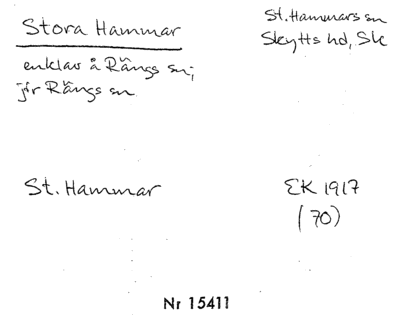 Stora Hammar
St. Hammars sn
Skytts hd, Sk
enklav å Rängs sn;
jfr Rängs sn
St. Hammar
EK 1917
(70)
Nr 15411